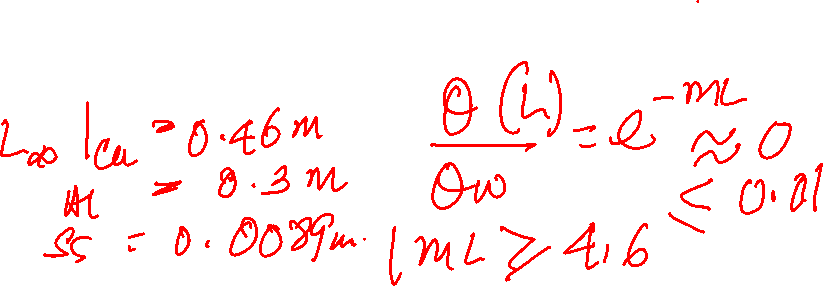 L∞|Cu = 0.46 m
Al = 0.3 m
SS = 0.0089m.
θ(L)/θw = e^-mL ≈ 0
≤ 0.01
mL ≥ 4.6